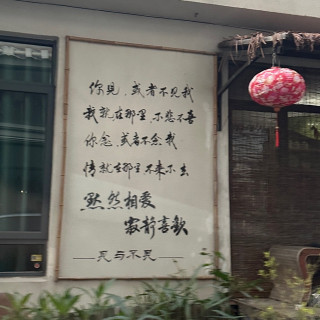 你见,或者不见我
我就在那里,不悲不喜
你念,或者不念我
情就在那里不来不去
默然相爱
寂静喜歡
——见与不见——